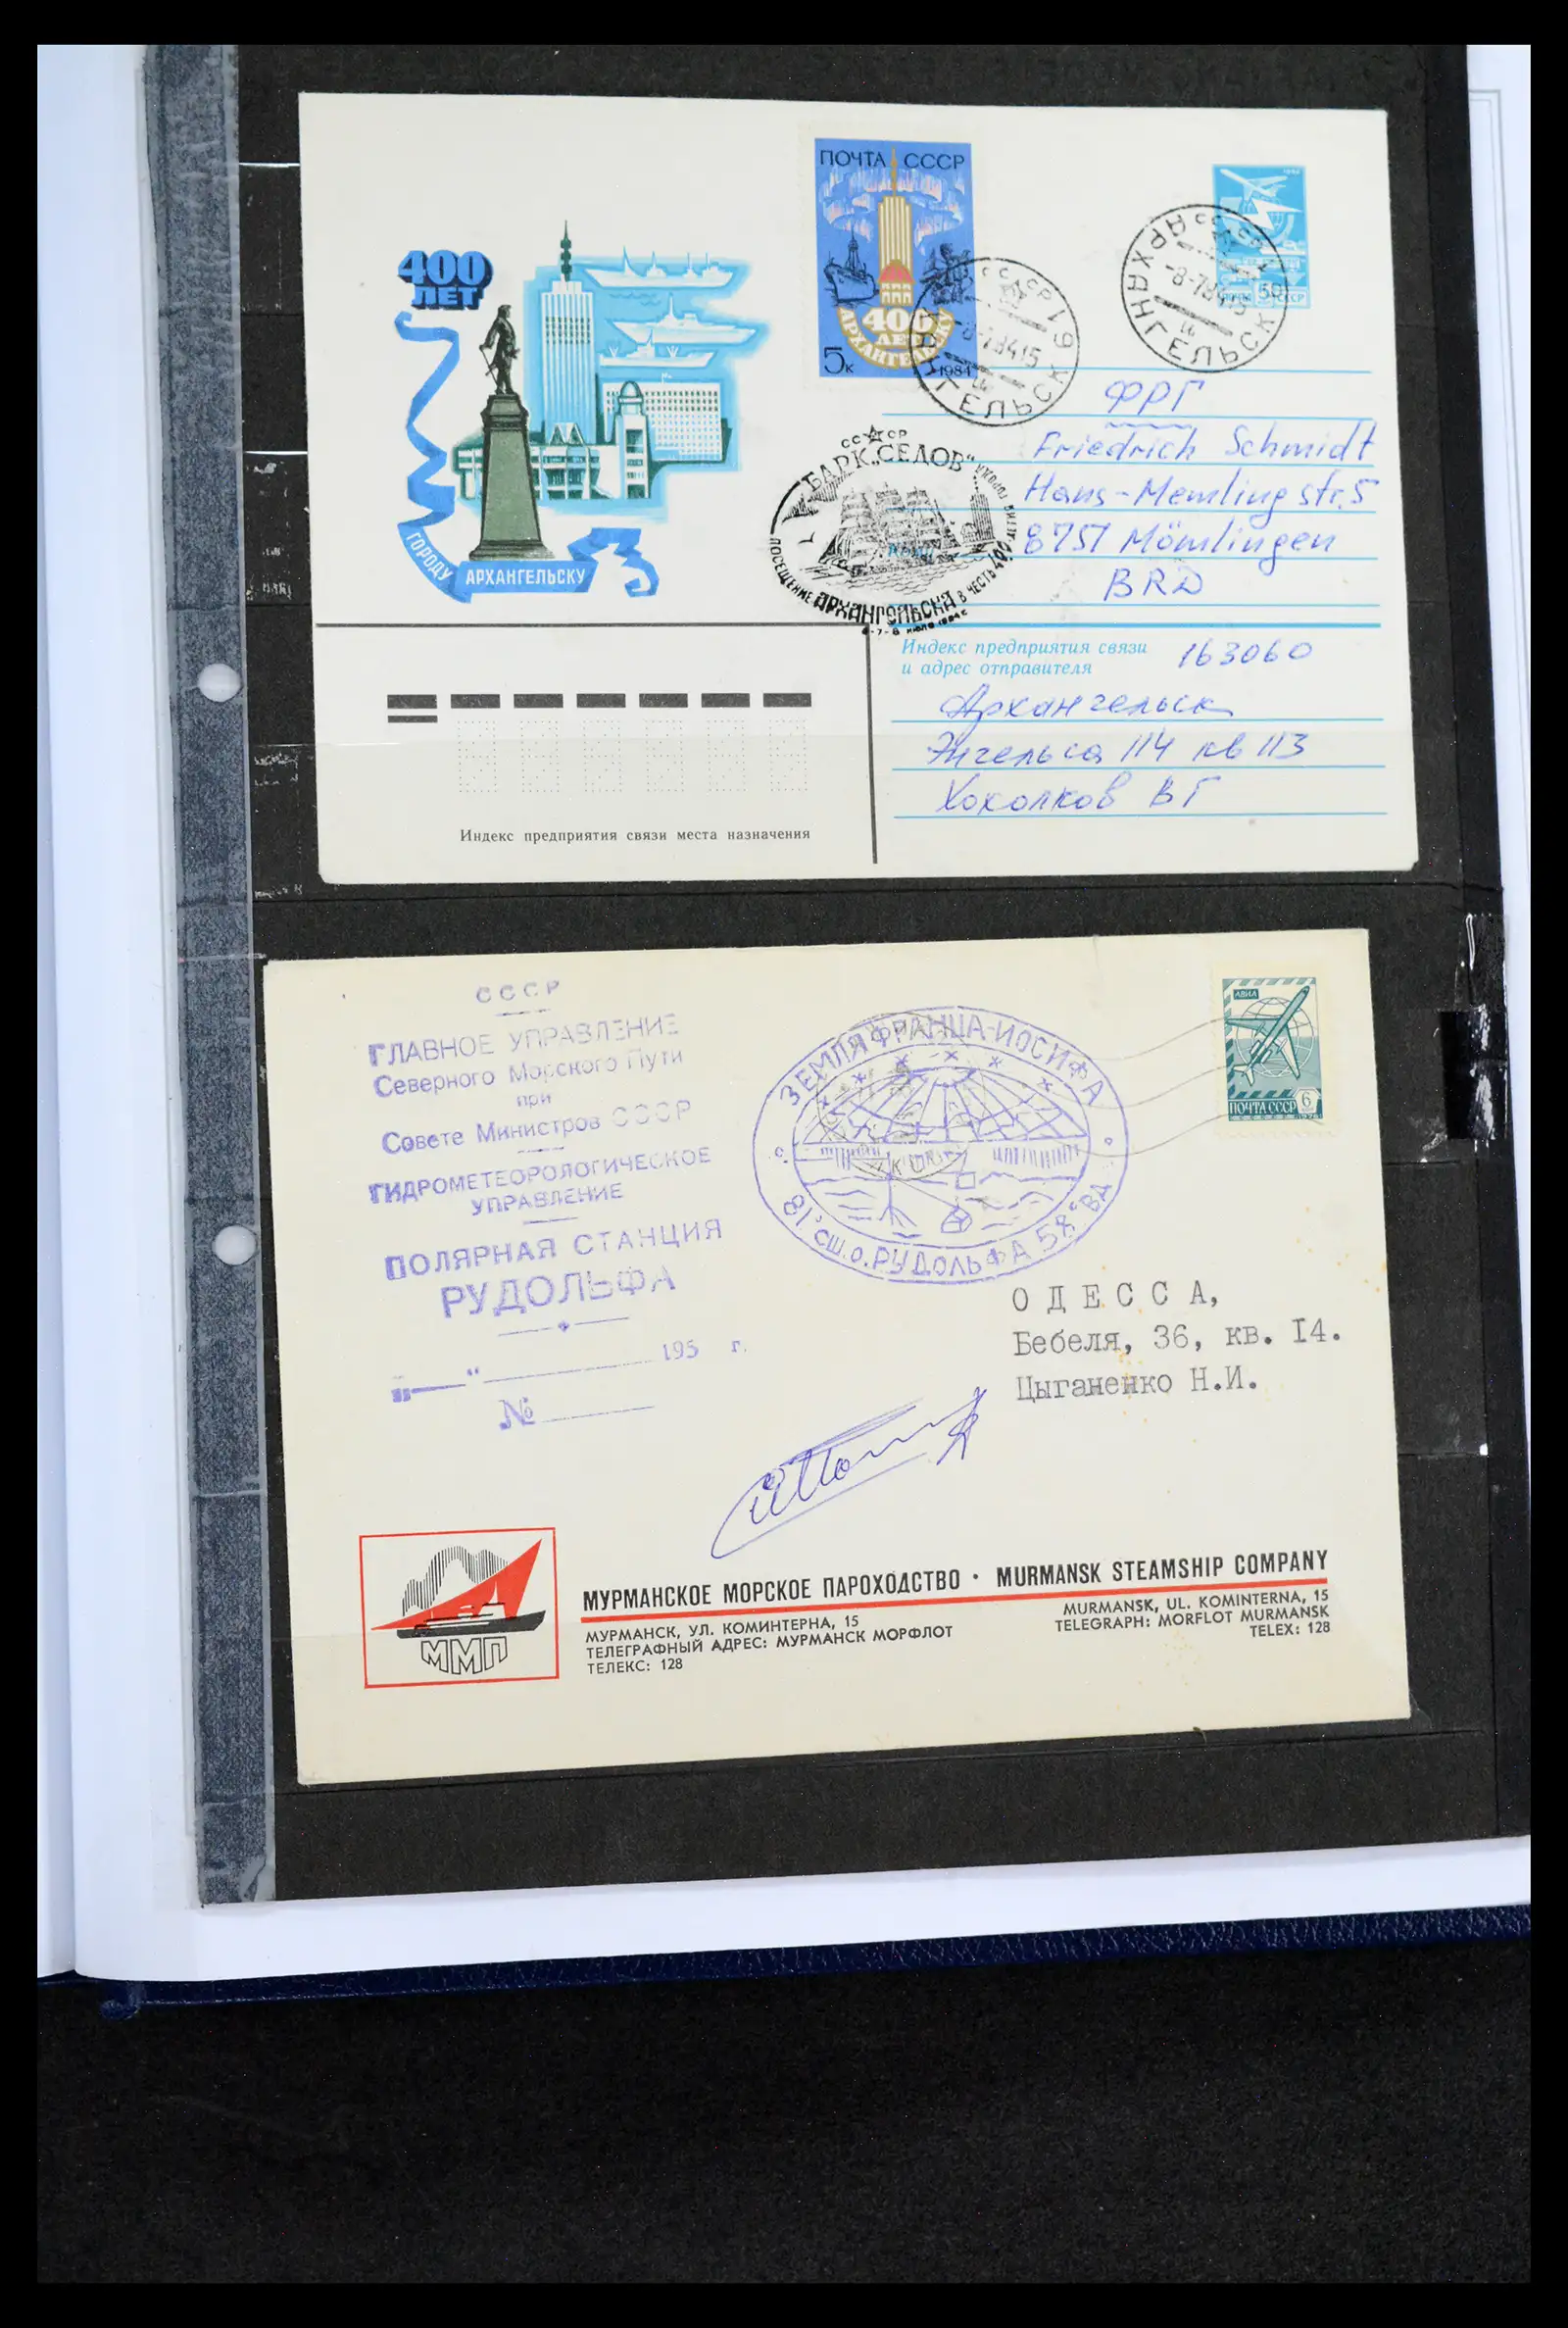 400
ЛЕТ
ГОРОДУ
АРХАНГЕЛЬСКУ
ПОЧТА СССР
400
ЛЕТ
АРХАНГЕЛЬСКУ
5к
1984
СССР
АРХАНГЕЛЬСК 19
-8-78415
СССР
АРХАНГЕЛЬСК
-8-78415
СССР
БАРК „СЕДОВ"
ПОСЕЩЕНИЕ АРХАНГЕЛЬСКА В ЧЕСТЬ 400-ЛЕТИЯ ГОРОДА
6-7-8 ИЮЛЯ 1984 г.
ФРГ
Friedrich Schmidt
Hans-Memling str. 5
8751 Mömlingen
BRD
Индекс предприятия связи
и адрес отправителя
163060
Архангельск
Энгельса 114 кв 113
Хохолков ВГ
Индекс предприятия связи места назначения
СССР
ГЛАВНОЕ УПРАВЛЕНИЕ
Северного Морского Пути
при
Совете Министров СССР
ГИДРОМЕТЕОРОЛОГИЧЕСКОЕ
УПРАВЛЕНИЕ
ПОЛЯРНАЯ СТАНЦИЯ
РУДОЛЬФА
195 г.
№
ЗЕМЛЯ ФРАНЦА-ИОСИФА
81° СШ. О. РУДОЛЬФА 58° ВД
АВИА
ПОЧТА СССР 6
ОДЕССА,
Бебеля, 36, кв. I4.
Цыганенко Н.И.
ММП
МУРМАНСКОЕ МОРСКОЕ ПАРОХОДСТВО · MURMANSK STEAMSHIP COMPANY
МУРМАНСК, УЛ. КОМИНТЕРНА, 15
ТЕЛЕГРАФНЫЙ АДРЕС: МУРМАНСК МОРФЛОТ
ТЕЛЕКС: 128
MURMANSK, UL. KOMINTERNA, 15
TELEGRAPH: MORFLOT MURMANSK
TELEX: 128